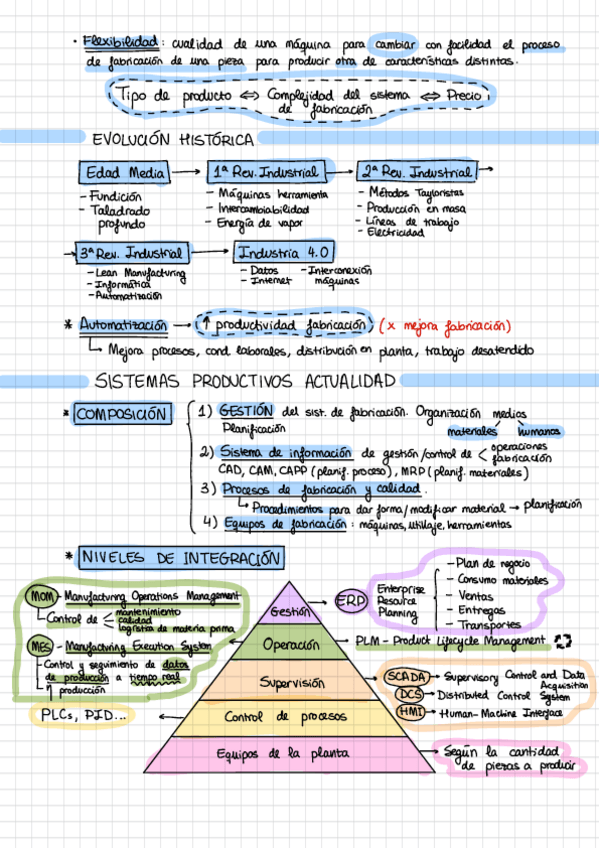 · Flexibilidad: cualidad de una máquina para cambiar con facilidad el proceso
de fabricación de una pieza para producir otra de características distintas.
Tipo de producto ⇔ Complejidad del sistema ⇔ Precio
de fabricación
EVOLUCIÓN HISTÓRICA
Edad Media → 1ª Rev. Industrial → 2ª Rev. Industrial →
- Fundición
- Taladrado
profundo
- Máquinas herramienta
- Intercambiabilidad
- Energía de vapor
- Métodos Tayloristas
- Producción en masa
- Líneas de trabajo
- Electricidad
→ 3ª Rev. Industrial → Industria 4.0
- Lean Manufacturing
- Informática
- Automatización
- Datos - Interconexión
- Internet máquinas
* Automatización → ↑ productividad fabricación (x mejora fabricación)
↳ Mejora procesos, cond. laborales, distribución en planta, trabajo desatendido
SISTEMAS PRODUCTIVOS ACTUALIDAD
* COMPOSICIÓN
1) GESTIÓN del sist. de fabricación. Organización medios
Planificación materiales humanos
2) Sistema de información de gestión/control de < operaciones
fabricación
CAD, CAM, CAPP (planif. proceso), MRP (planif. materiales)
3) Procesos de fabricación y calidad.
↳ Procedimientos para dar forma/modificar material → planificación
4) Equipos de fabricación: máquinas, utillaje, herramientas
* NIVELES DE INTEGRACIÓN
MOM - Manufacturing Operations Management
Control de < mantenimiento
calidad
logística de materia prima
MES - Manufacturing Execution System
Control y seguimiento de datos
de producción a tiempo real
↑ producción
PLCs, PID...
Gestión
Operación
Supervisión
Control de procesos
Equipos de la planta
ERP
Enterprise
Resource
Planning
- Plan de negocio
- Consumo materiales
- Ventas
- Entregas
- Transportes
PLM - Product Lifecycle Management
SCADA → Supervisory Control and Data
Acquisition
DCS → Distributed Control System
HMI → Human-Machine Interface
Según la cantidad
de piezas a producir